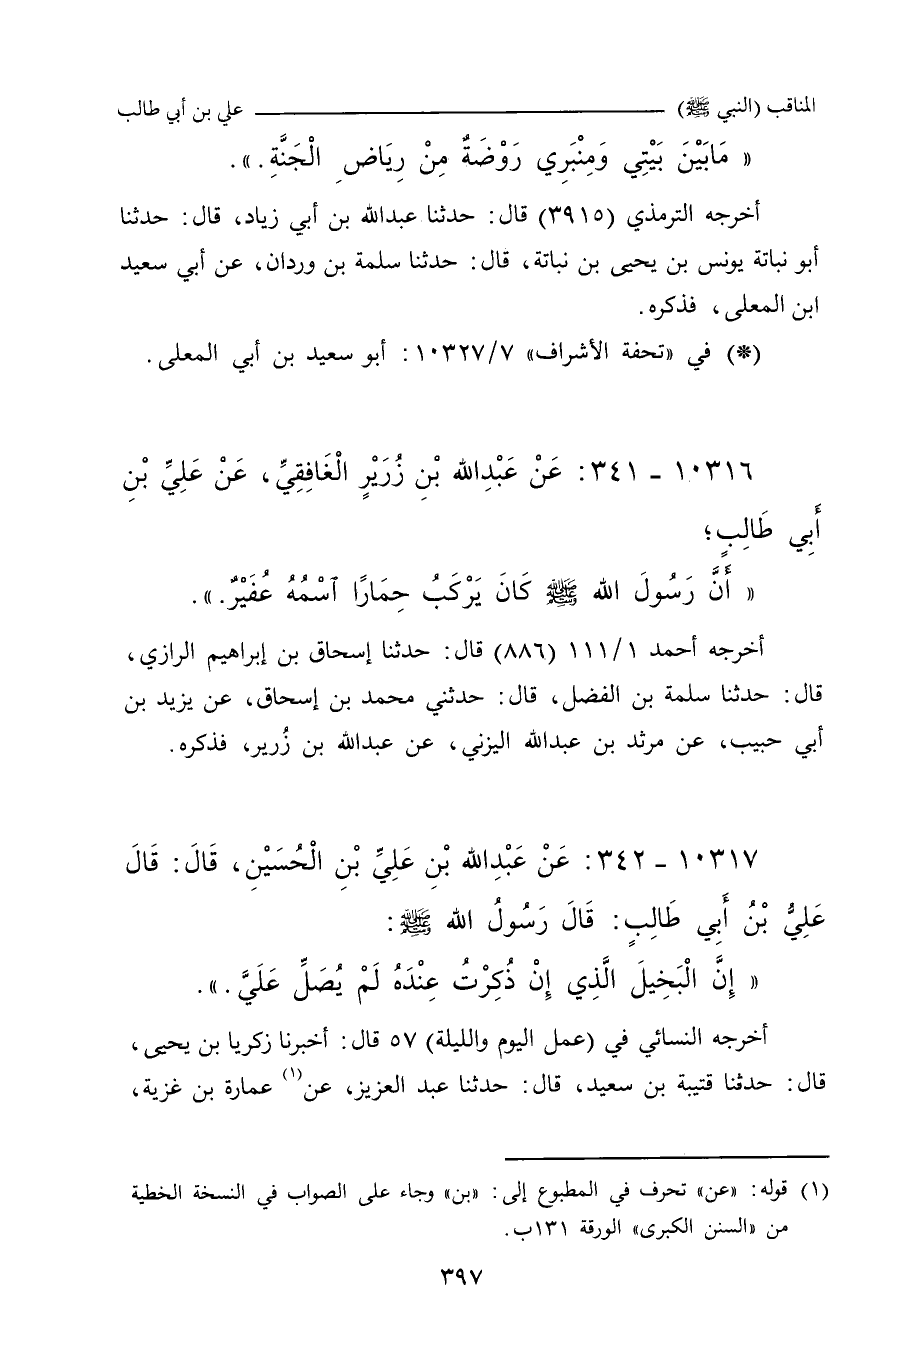 المناقب (النبي ﷺ) علي بن أبي طالب
« مَابَيْنَ بَيْتِي وَمِنْبَرِي رَوْضَةٌ مِنْ رِيَاضِ الْجَنَّةِ . ».
أخرجه الترمذي (٣٩١٥) قال: حدثنا عبدالله بن أبي زياد، قال: حدثنا
أبو نباتة يونس بن يحيى بن نباتة، قال: حدثنا سلمة بن وردان، عن أبي سعيد
ابن المعلى، فذكره.
(*) في «تحفة الأشراف» ١٠٣٢٧/٧: أبو سعيد بن أبي المعلى.
١٠٣١٦ - ٣٤١: عَنْ عَبْدِالله بْنِ زُرَيْرٍ الْغَافِقِيِّ، عَنْ عَلِيِّ بْنِ
أَبِي طَالِبٍ؛
« أَنَّ رَسُولَ الله ﷺ كَانَ يَرْكَبُ حِمَارًا ٱسْمُهُ عُفَيْرٌ. ».
أخرجه أحمد ١/ ١١١ (٨٨٦) قال: حدثنا إسحاق بن إبراهيم الرازي،
قال: حدثنا سلمة بن الفضل، قال: حدثني محمد بن إسحاق، عن يزيد بن
أبي حبيب، عن مرثد بن عبدالله اليزني، عن عبدالله بن زُرير، فذكره.
١٠٣١٧ - ٣٤٢: عَنْ عَبْدِالله بْنِ عَلِيِّ بْنِ الْحُسَيْنِ، قَالَ: قَالَ
عَلِيُّ بْنُ أَبِي طَالِبٍ: قَالَ رَسُولُ الله ﷺ:
« إِنَّ الْبَخِيلَ الَّذِي إِنْ ذُكِرْتُ عِنْدَهُ لَمْ يُصَلِّ عَلَيَّ. ».
أخرجه النسائي في (عمل اليوم والليلة) ٥٧ قال: أخبرنا زكريا بن يحيى،
قال: حدثنا قتيبة بن سعيد، قال: حدثنا عبد العزيز، عن(١) عمارة بن غزية،
(١) قوله: «عن» تحرف في المطبوع إلى: «بن» وجاء على الصواب في النسخة الخطية
من «السنن الكبرى» الورقة ١٣١ب.
٣٩٧